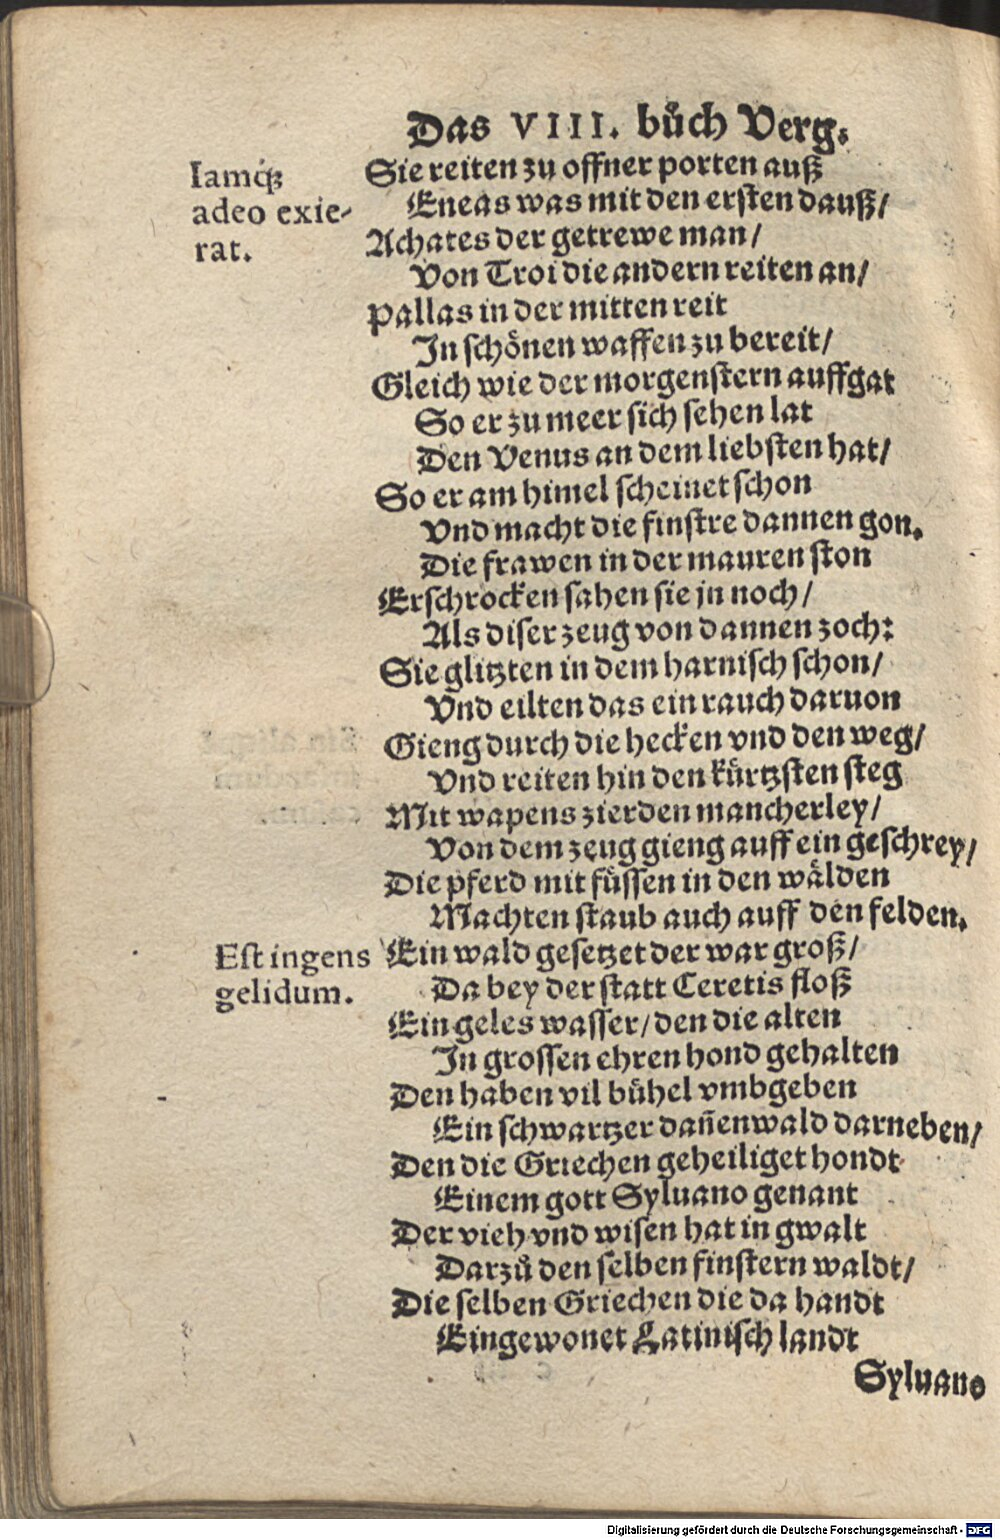 Das VIII. bůch Verg.
Iamq́;
adeo exie-
rat.
Sie reiten zu offner porten auß
Eneas was mit den ersten dauß/
Achates der getrewe man/
Von Troi die andern reiten an/
Pallas in der mitten reit
In schönen waffen zu bereit/
Gleich wie der morgenstern auffgat
So er zu meer sich sehen lat
Den Venus an dem liebsten hat/
So er am himel scheinet schon
Vnd macht die finstre dannen gon.
Die frawen in der mauren ston
Erschrocken sahen sie jn noch/
Als diser zeug von dannen zoch:
Sie glitzten in dem harnisch schon/
Vnd eilten das ein rauch daruon
Gieng durch die hecken vnd den weg/
Vnd reiten hin den kürtzsten steg
Mit wapens zierden mancherley/
Von dem zeug gieng auff ein geschrey/
Die pferd mit füssen in den wälden
Machten staub auch auff den felden.
Est ingens
gelidum.
Ein wald gesetzet der war groß/
Da bey der statt Ceretis floß
Ein geles wasser/den die alten
In grossen ehren hond gehalten
Den haben vil bühel vmbgeben
Ein schwartzer dañenwald darneben/
Den die Griechen geheiliget hondt
Einem gott Syluano genant
Der vieh vnd wisen hat in gwalt
Darzů den selben finstern waldt/
Die selben Griechen die da handt
Eingewonet Latinisch landt
Syluano
Digitalisierung gefördert durch die Deutsche Forschungsgemeinschaft - DFG